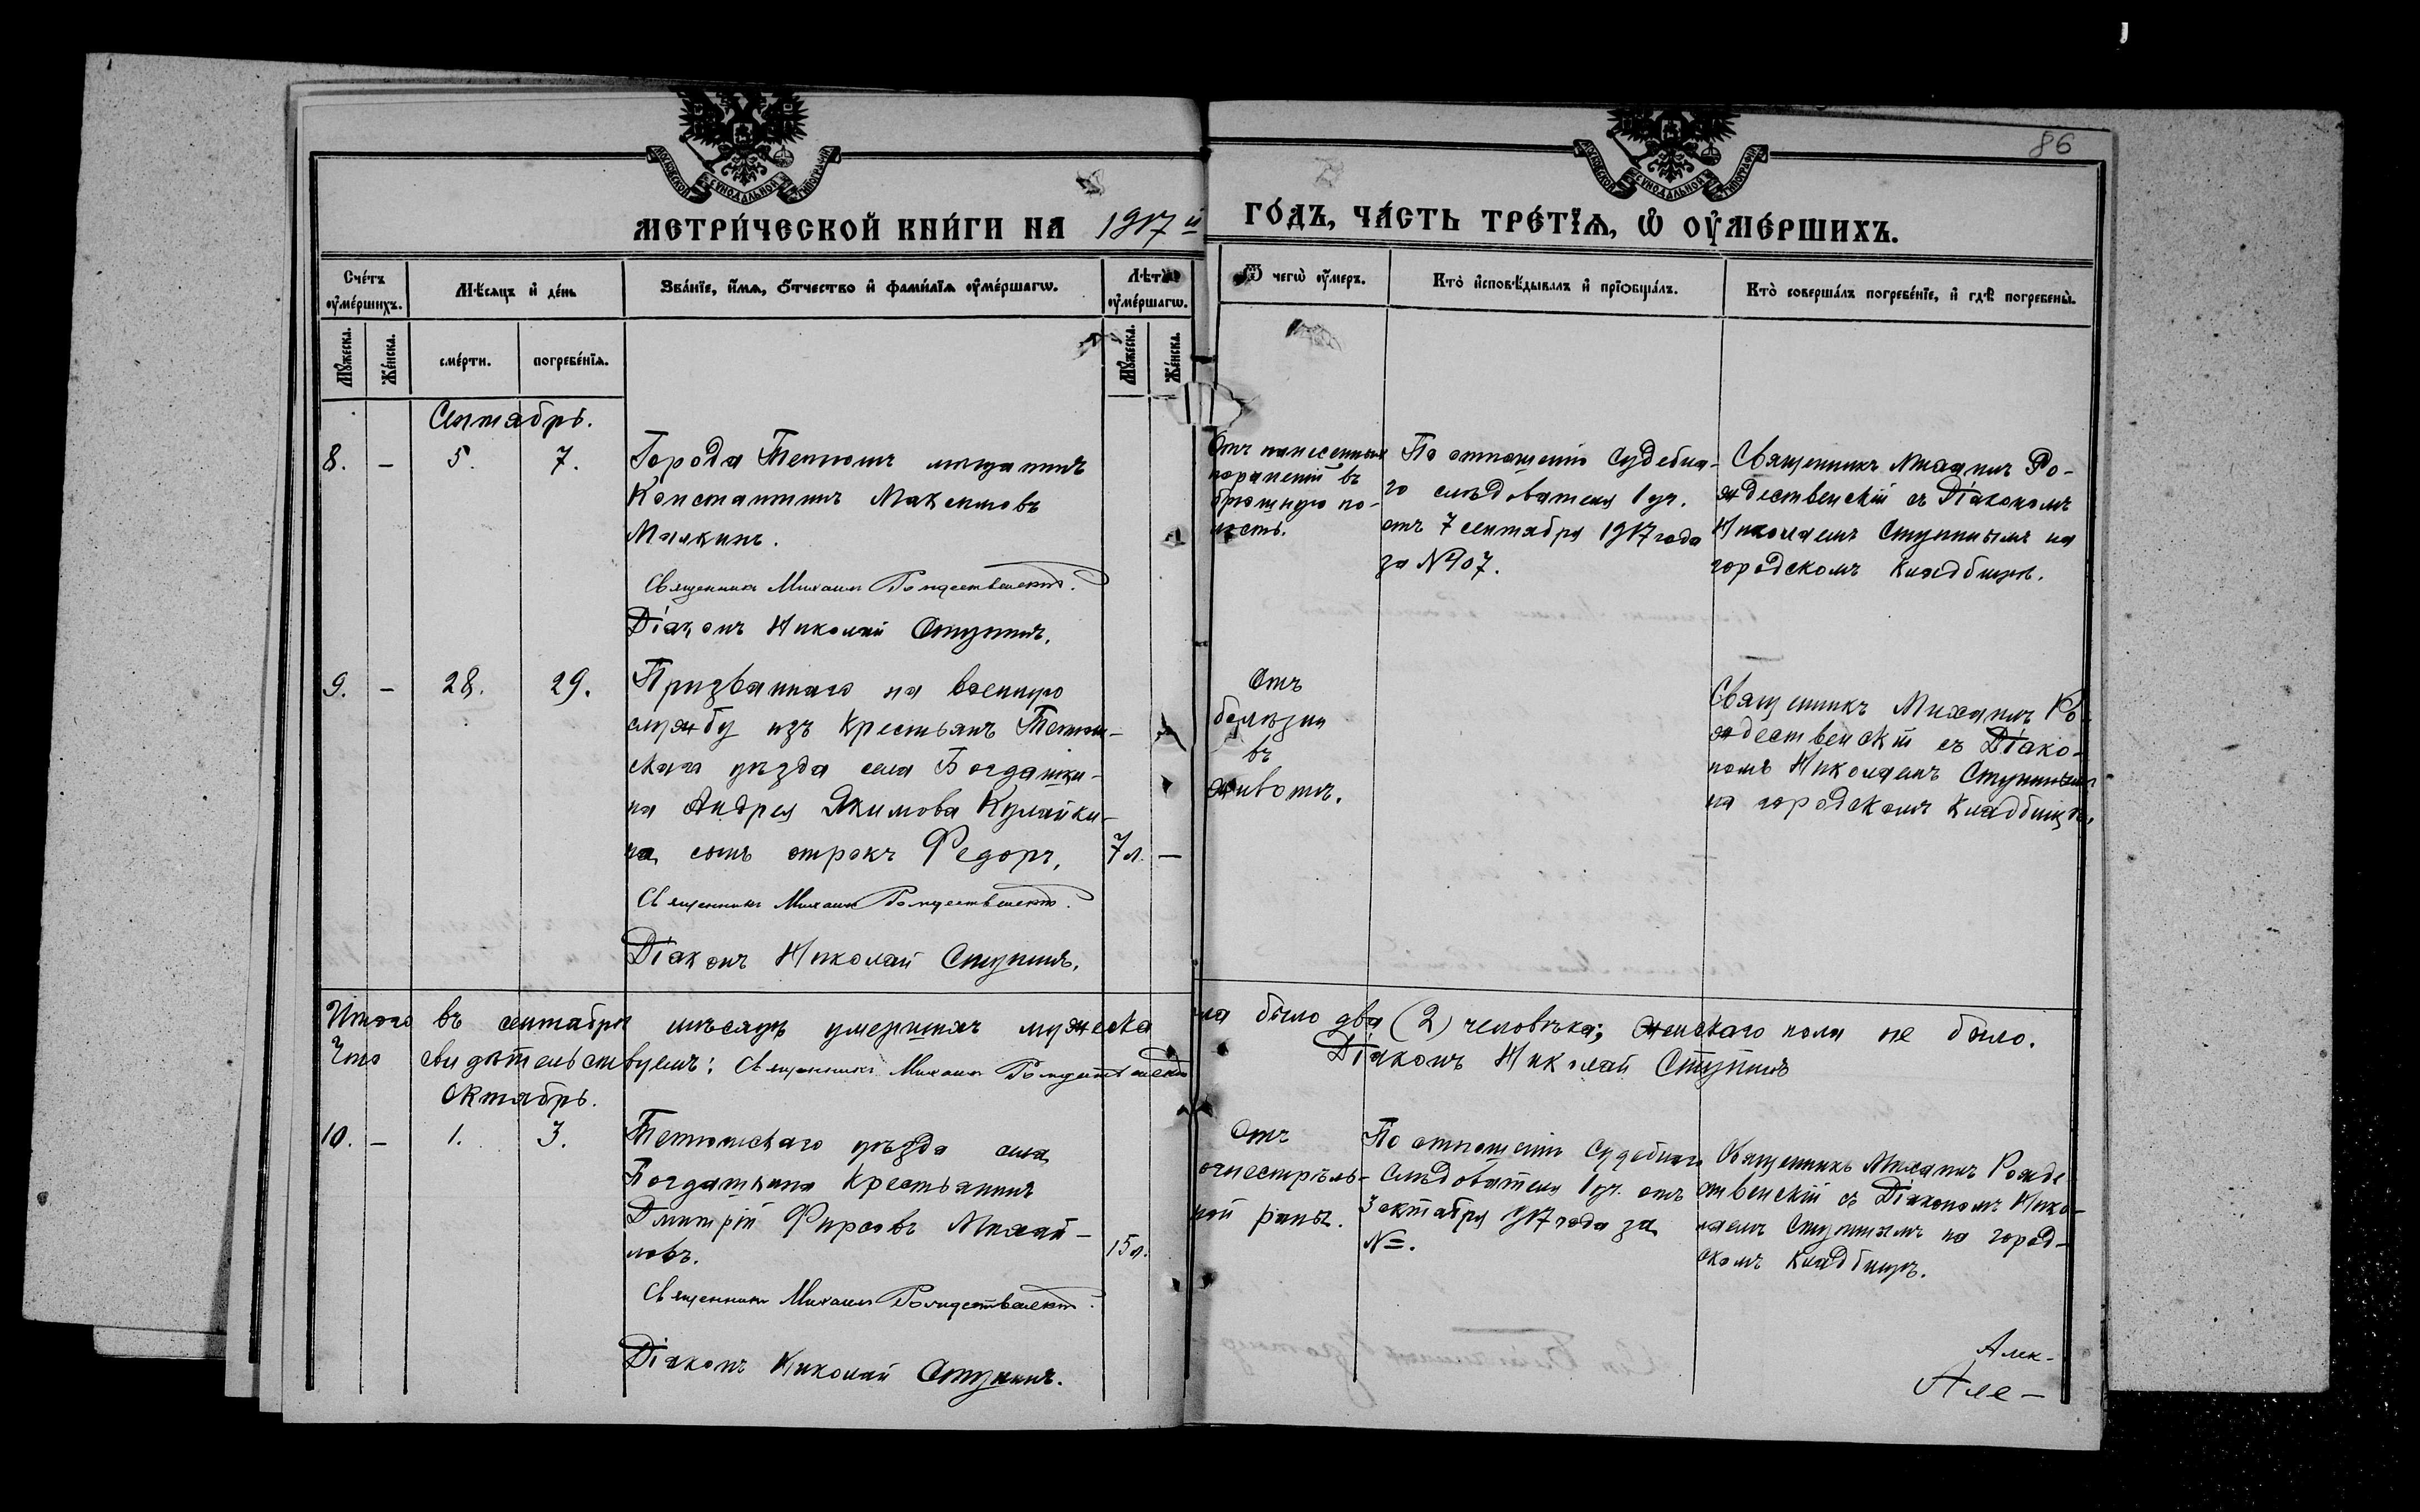 86
МОСКОВСКОЙ СѴНОДАЛЬНОЙ ТИПОГРАФІИ
МОСКОВСКОЙ СѴНОДАЛЬНОЙ ТИПОГРАФІИ
МЕТРИ́ЧЕСКОЙ КНИ́ГИ НА 1917 й ГО́ДЪ, ЧА́СТЬ ТРЕ́ТЇѦ, Ѡ҆ ОУ҆МЕ́РШИХЪ.
Сче́тъ оу҆ме́ршихъ.
Мѣ́сяцъ и҆ де́нь
Зва́нїе, и҆́мѧ, ѻ҆́тчество и҆ фами́лїѧ оу҆ме́ршагѡ.
Лѣ́та оу҆ме́ршагѡ.
Ѿ чегѡ̀ оу҆́меръ.
Кто̀ и҆сповѣ́дывалъ и҆ прїѻбща́лъ.
Кто̀ соверша́лъ погребе́нїе, и҆ гдѣ̀ погребены̀.
Мꙋ́жеска.
Же́нска.
сме́рти.
погребе́нїѧ.
Мꙋ́жеска.
Же́нска.
Сентябрь.
8. – 5. 7.
Города Тетюшъ мѣщанинъ
Константинъ Максимовъ
Малкинъ.
Священникъ Михаилъ Рождественскій.
Діаконъ Николай Ступинъ.
Отъ нанесенныхъ
пораненій въ
брюшную по-
лость.
По отношенію Судебна-
го слѣдователя 1 уч.
отъ 7 сентября 1917 года
за № 907.
Священникъ Михаилъ Ро-
ждественскій съ Діакономъ
Николаемъ Ступинымъ на
городскомъ кладбищѣ.
9. – 28. 29.
Призваннаго на военную
службу изъ крестьянъ Тетюш-
скаго уѣзда села Богдашки-
на Андрея Якимова Кулайки-
на сынъ отрокъ Федоръ,
7 л. –
Священникъ Михаилъ Рождественскій.
Діаконъ Николай Ступинъ.
Отъ
болѣзни
въ
животѣ.
Священникъ Михаилъ Ро-
ждественскій съ Діако-
номъ Николаемъ Ступинымъ
на городскомъ кладбищѣ.
Итого въ сентябрѣ мѣсяцѣ умершихъ мужеска пола было два (2) человѣка; женскаго пола не было.
Что свидѣтельствуемъ: Священникъ Михаилъ Рождественскій
Діаконъ Николай Ступинъ
Октябрь.
10. – 1. 3.
Тетюшскаго уѣзда села
Богдашкина крестьянинъ
Дмитрій Фирсовъ Михай-
ловъ.
15 л.
Священникъ Михаилъ Рождественскій.
Діаконъ Николай Ступинъ.
Отъ
огнестрѣль-
ной раны.
По отношенію Судебнаго
Слѣдователя 1 уч. отъ
3 октября 1917 года за
№=.
Священникъ Михаилъ Рожде-
ственскій съ Діакономъ Нико-
лаемъ Ступинымъ на город-
скомъ кладбищѣ.
Алек-
Але-